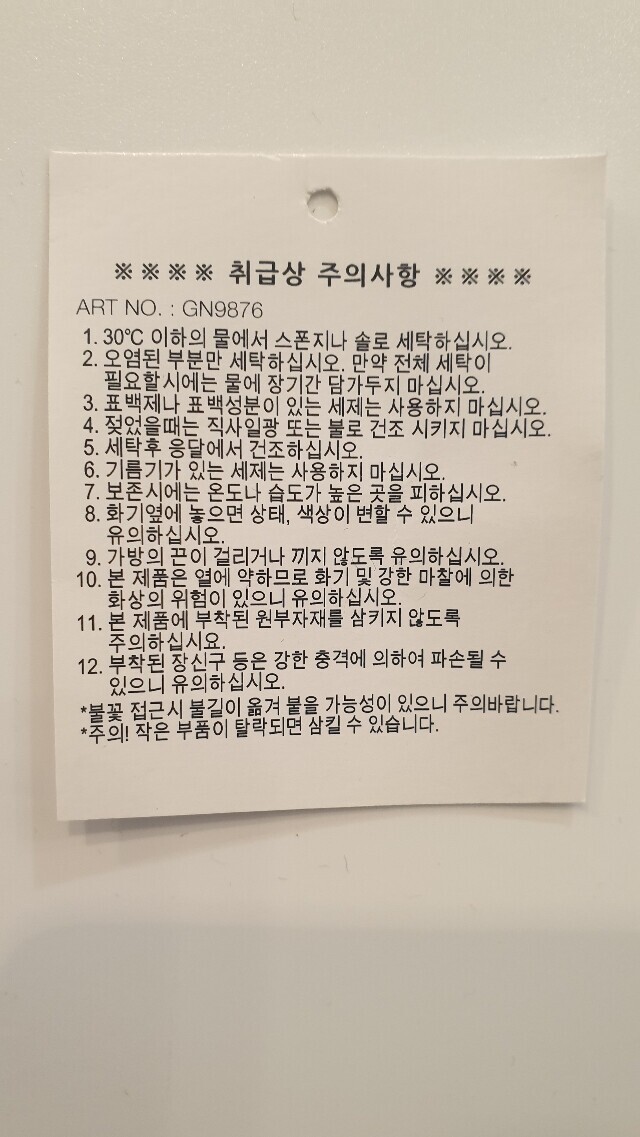 ※※※※ 취급상 주의사항 ※※※※
ART NO. : GN9876
1. 30℃ 이하의 물에서 스폰지나 솔로 세탁하십시오.
2. 오염된 부분만 세탁하십시오. 만약 전체 세탁이
필요할시에는 물에 장기간 담가두지 마십시오.
3. 표백제나 표백성분이 있는 세제는 사용하지 마십시오.
4. 젖었을때는 직사일광 또는 불로 건조 시키지 마십시오.
5. 세탁후 응달에서 건조하십시오.
6. 기름기가 있는 세제는 사용하지 마십시오.
7. 보존시에는 온도나 습도가 높은 곳을 피하십시오.
8. 화기옆에 놓으면 상태, 색상이 변할 수 있으니
유의하십시오.
9. 가방의 끈이 걸리거나 끼지 않도록 유의하십시오.
10. 본 제품은 열에 약하므로 화기 및 강한 마찰에 의한
화상의 위험이 있으니 유의하십시오.
11. 본 제품에 부착된 원부자재를 삼키지 않도록
주의하십시요.
12. 부착된 장신구 등은 강한 충격에 의하여 파손될 수
있으니 유의하십시오.
*불꽃 접근시 불길이 옮겨 붙을 가능성이 있으니 주의바랍니다.
*주의! 작은 부품이 탈락되면 삼킬 수 있습니다.